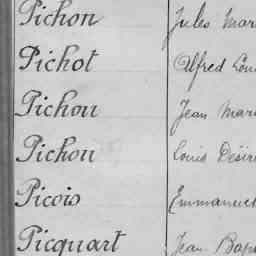 Pichon Jules Mar
Pichot Alfred Lou
Pichon Jean Mar
Pichon Louis Désir
Picois Emmanuel
Picquart Jean Bap